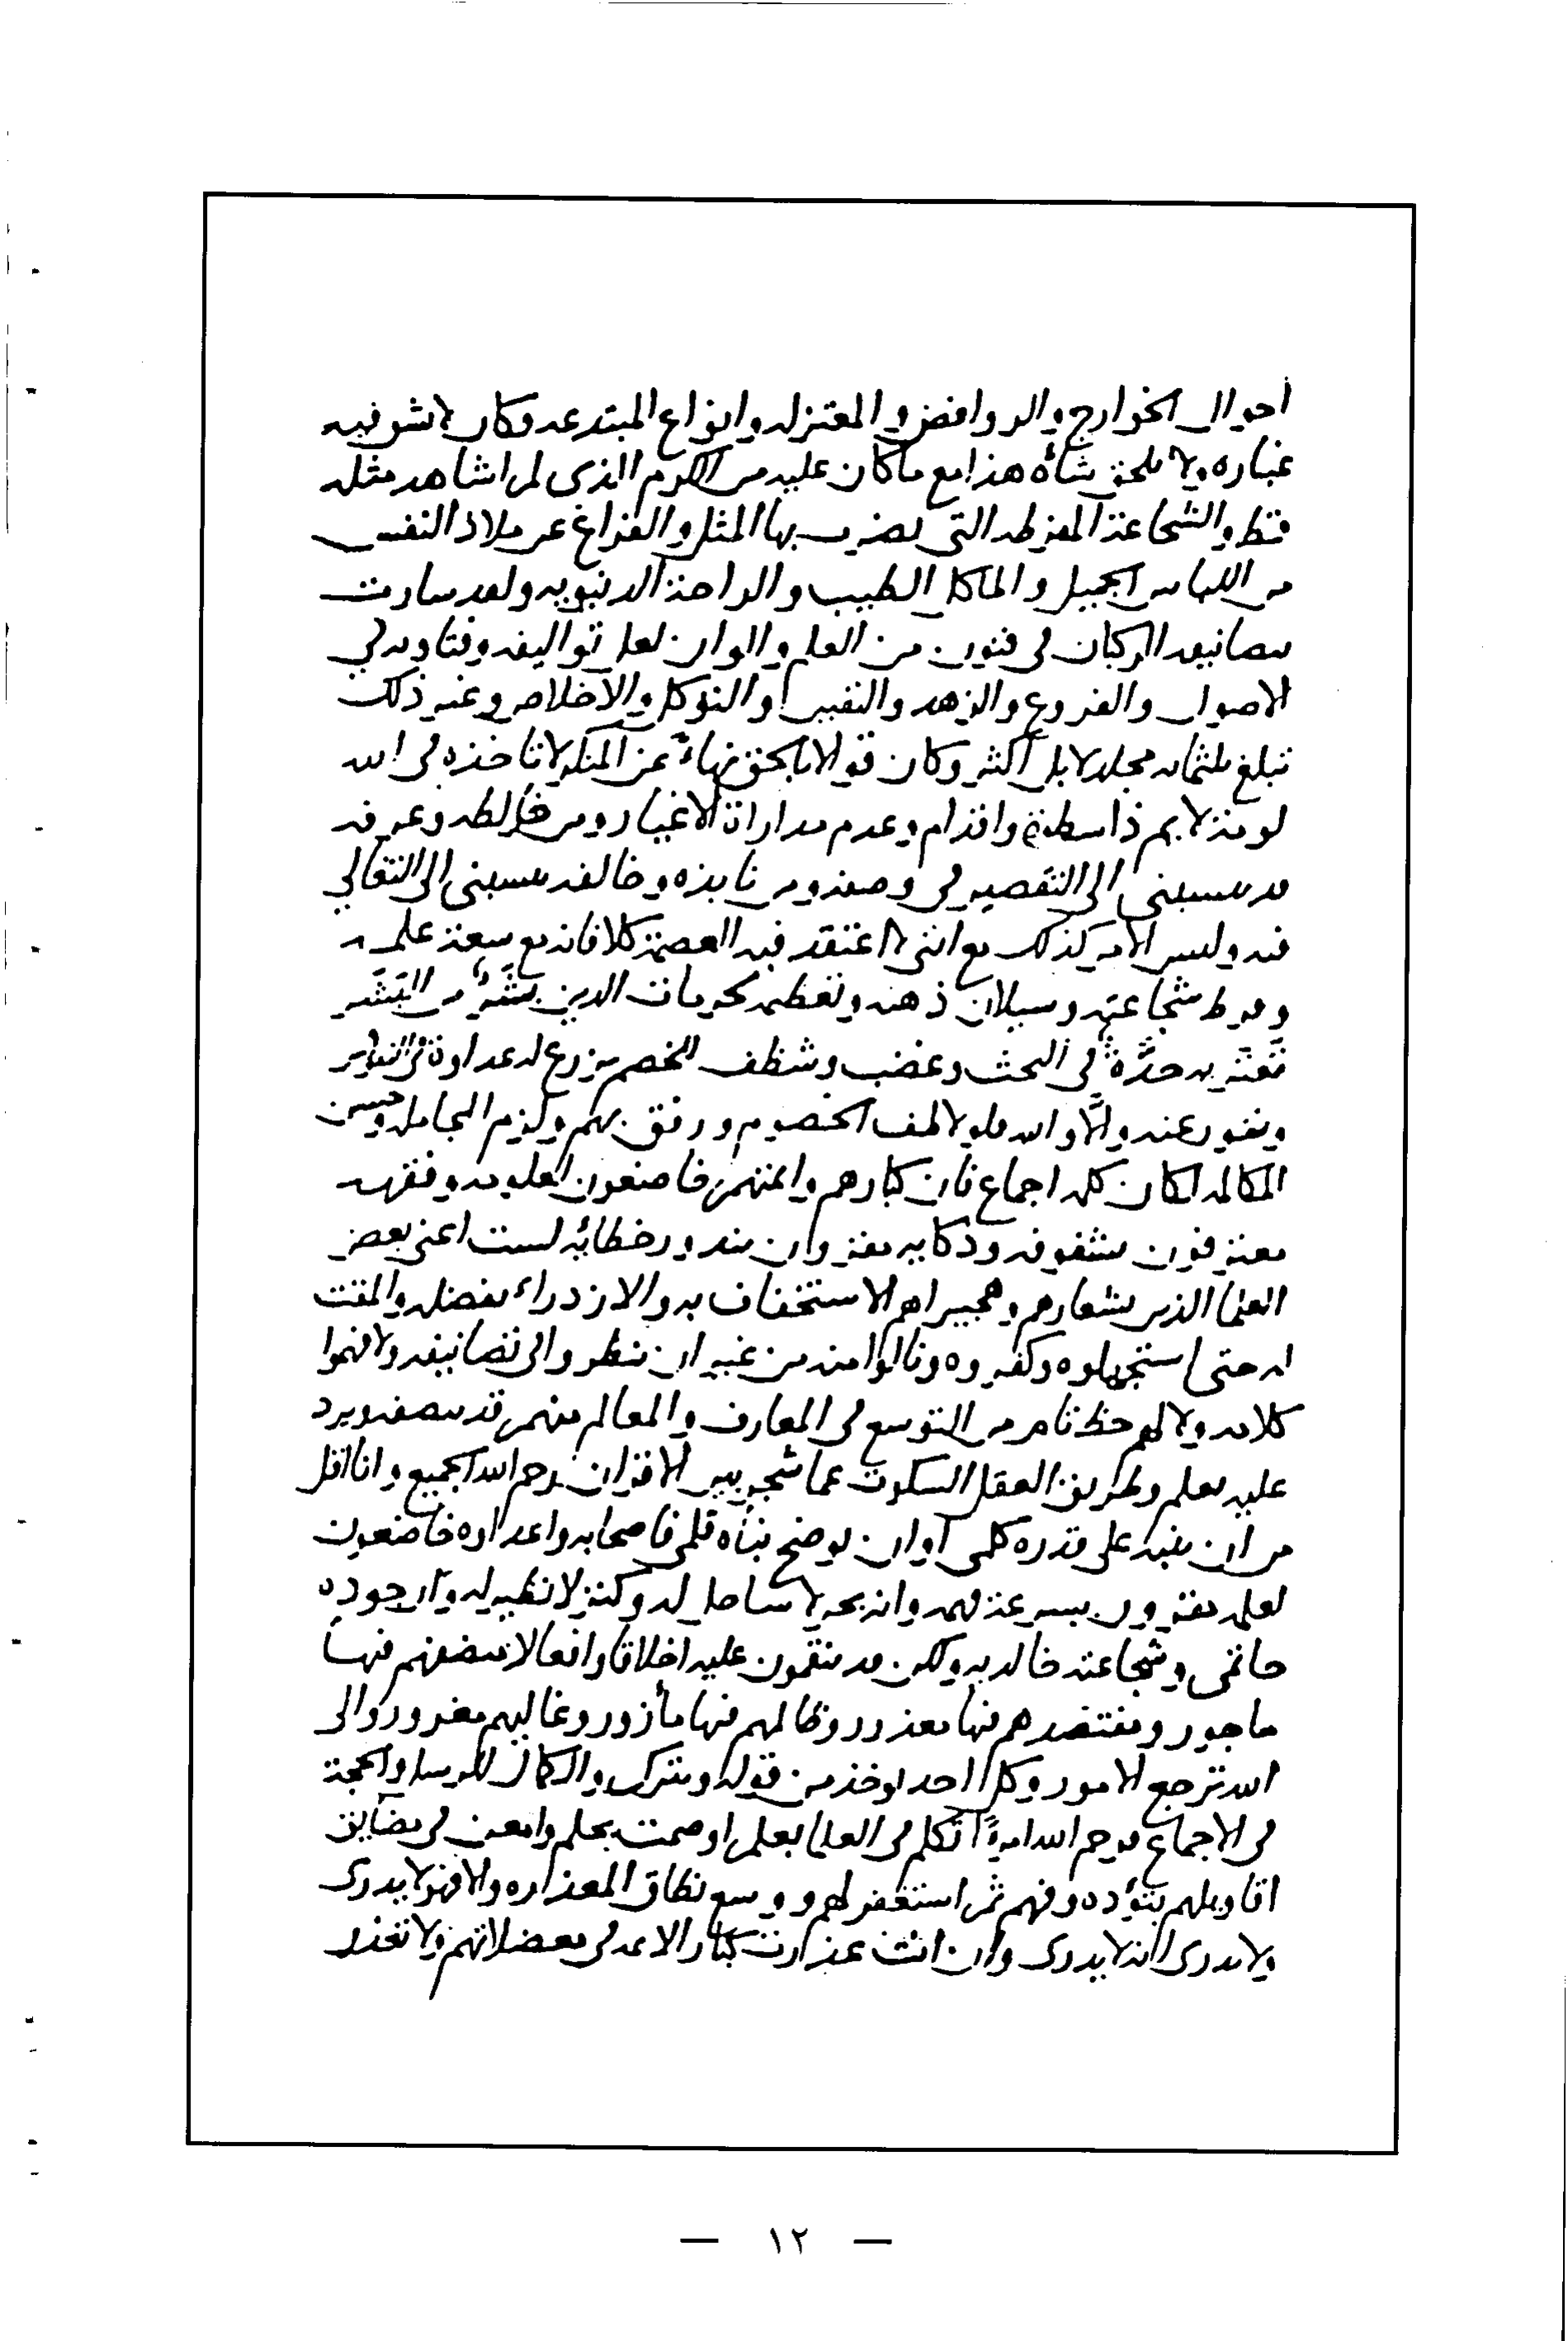 احوال الخوارج والروافض والمعتزله وانواع المبتدعه وكان لا يشق فيه
غباره ولا يلحق شأوه هذا مع ما كان عليه من الكرم الذى لم اشاهد مثله
قط والشجاعة المفرطه التى يضرب بها المثل والفراغ عن ملاذ النفس
من اللباس الجميل والماكل الطيب والراحة الدنيويه ولقد سارت
بتصانيفه الركبان فى فنون من العلم والوان لعل تواليفه وفتاويه فى
الاصول والفروع والزهد والتفسير والتوكل والاخلاص وغير ذلك
تبلغ ثلثمايه مجلد لا بل اكثر وكان قوالا بالحق نهاء عن المنكر لا تاخذه فى الله
لومة لايم ذا سطوة واقدام وعدم مداراة الاغيار ومن خالطه وعرفه
قد ينسبنى الى التقصير فى وصفه ومن نابذه وخالفه ينسبنى الى التغالى
فيه وليس الامر كذلك مع اننى لا اعتقد فيه العصمة كلا فانه مع سعة علمه
وفرط شجاعته وسيلان ذهنه وتعظيمه لحرمات الدين بشر من البشر
تعتريه حدة فى البحث وغضب وشظف للخصم يزرع له عداوة فى النفوس
ونفور عنه والا والله فلو لاطف الخصوم ورفق بهم ولزم المجامله وحسن
المكالمه لكان كلمه اجماع فان كبارهم وايمتهم خاضعون لعلومه وفقهه
معترفون بشفوفه وذكايه مقرون بندور خطائه لست اعنى بعض
العلما الذين شعارهم وهجيراهم الاستخفاف به والازدراء بفضله والمقت
له حتى استجهلوه وكفروه ونالوا منه من غير ان ينظروا الى تصانيفه ولا فهموا
كلامه ولا لهم حظ تام من التوسع فى المعارف والعالم منهم قد ينصفه ويرد
عليه بعلم وطريق العقل السكوت عما شجر بين الاقران رحم الله الجميع وانا اقل
من ان ينبه على قدره كلمى او ان يوضح نبأه قلمى فاصحابه واعداوه خاضعون
لعلمه مقرون بسرعة فهمه وانه بحر لا ساحل له وكنز لا نظير له وان جوده
حاتمى وشجاعته خالديه ولكن قد ينقمون عليه اخلاقا وافعالا منصفهم فيها
ماجور ومقتصدهم فيها معذور وظالمهم فيها مأزور وغاليهم مغرور والى
الله ترجع الامور وكل احد يوخذ من قوله ويترك والكمال للرسل والحجة
فى الاجماع فرحم الله امرءًا تكلم فى العلما بعلم او صمت بحلم وامعن فى مضايق
اقاويلهم بتؤده وفهم ثم استغفر لهم ووسع نطاق المعذره والا فهو لا يدرى
ولا يدرى انه لا يدرى وان انت عذرت كبار الايمه فى معضلاتهم ولا تعذر
— ١٢ —